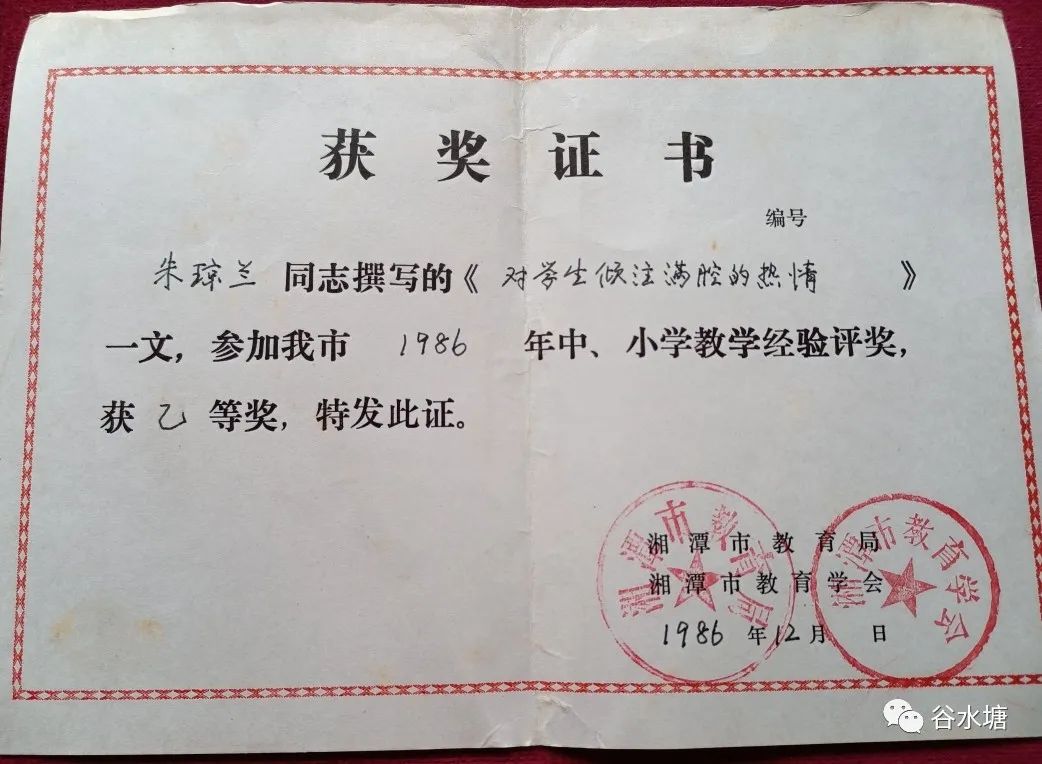 获奖证书
编号
朱琼兰 同志撰写的《对学生倾注满腔的热情》
一文，参加我市 1986 年中、小学教学经验评奖，
获乙等奖，特发此证。
湘潭市教育局
湘潭市教育学会
1986年12月 日
湘潭市教育局
湘潭市教育学会
谷水塘